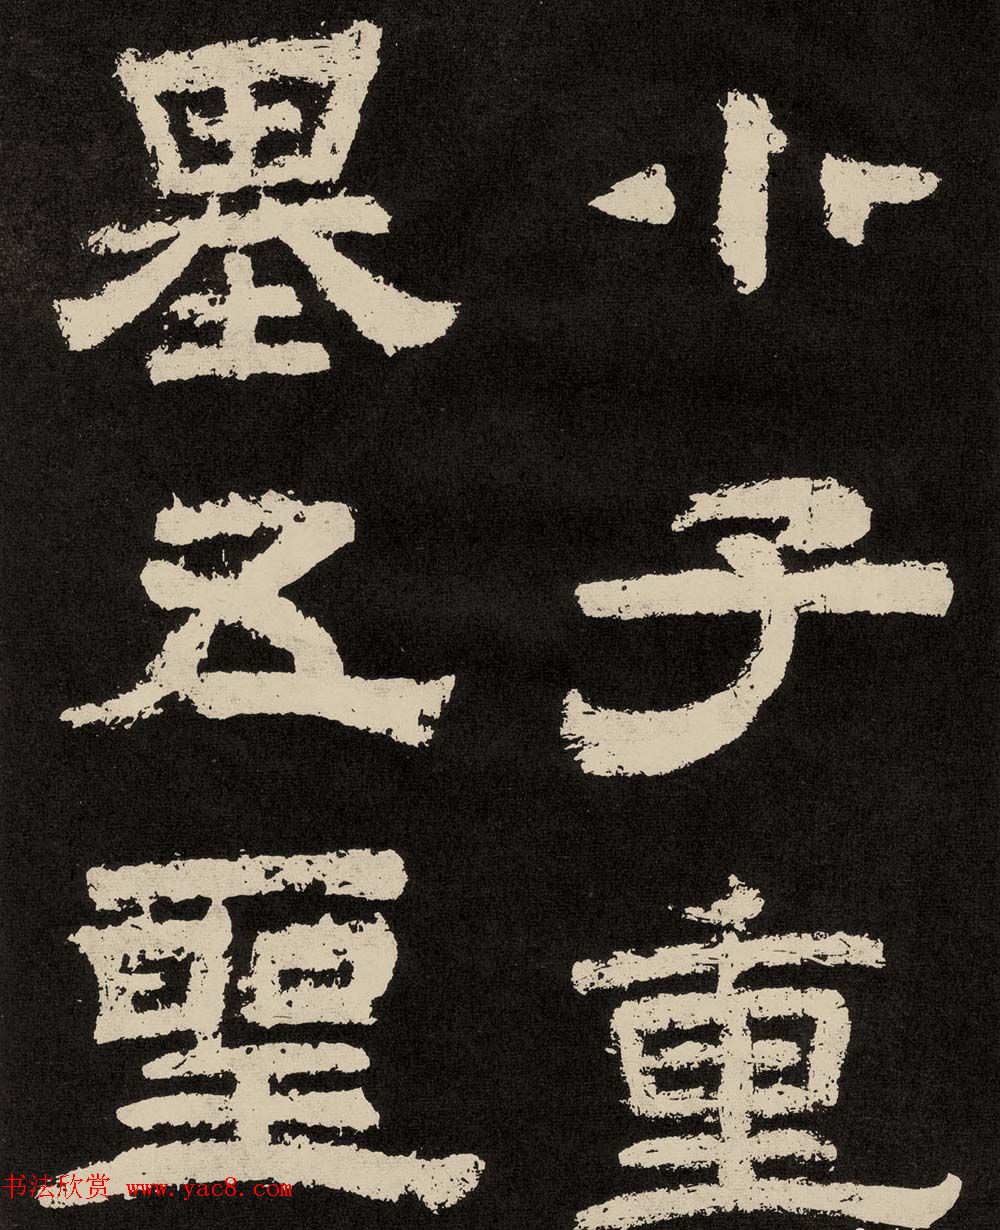 小子重
基五聖
书法欣赏 www.yac8.com